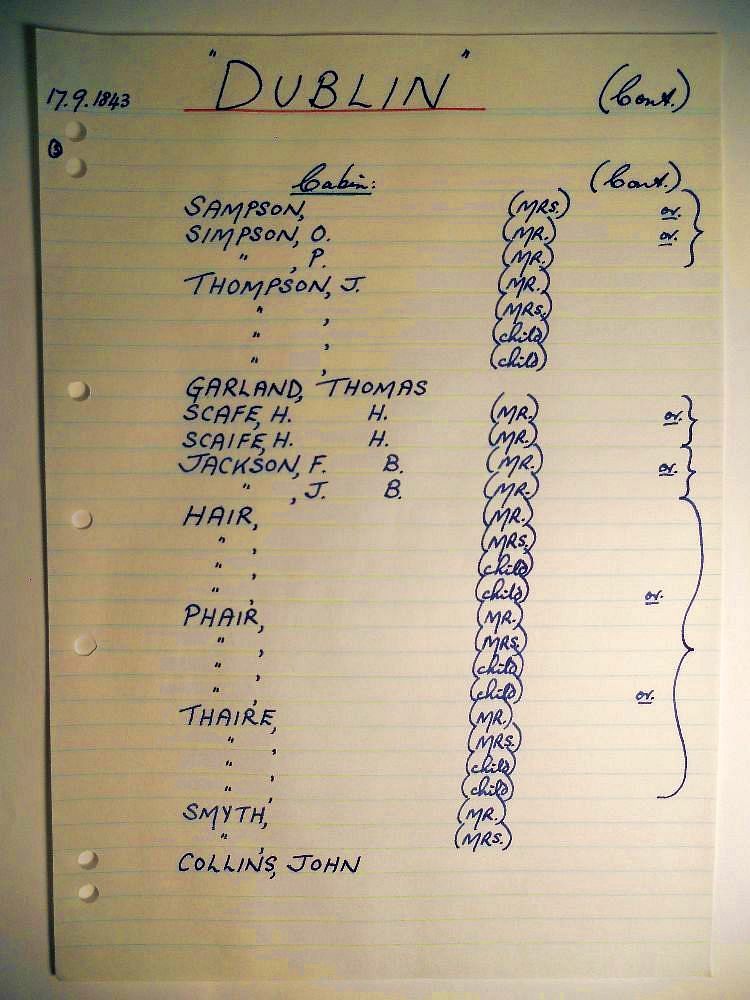 "DUBLIN"
17.9.1843 (Cont.)
Cabin: (Cont.)
SAMPSON, (MRS.) or.
SIMPSON, O. (MR.) or.
" , P. (MR.)
THOMPSON, J. (MR.)
" , (MRS.)
" , (child)
" , (child)
GARLAND, THOMAS
SCAFE, H. H. (MR.) or.
SCAIFE, H. H. (MR.)
JACKSON, F. B. (MR.) or.
" , J. B. (MR.)
HAIR, (MR.)
" , (MRS.)
" , (child)
" , (child) or.
PHAIR, (MR.)
" , (MRS.)
" , (child)
" , (child) or.
THAIRE, (MR.)
" , (MRS.)
" , (child)
" , (child)
SMYTH, (MR.)
" , (MRS.)
COLLINS, JOHN